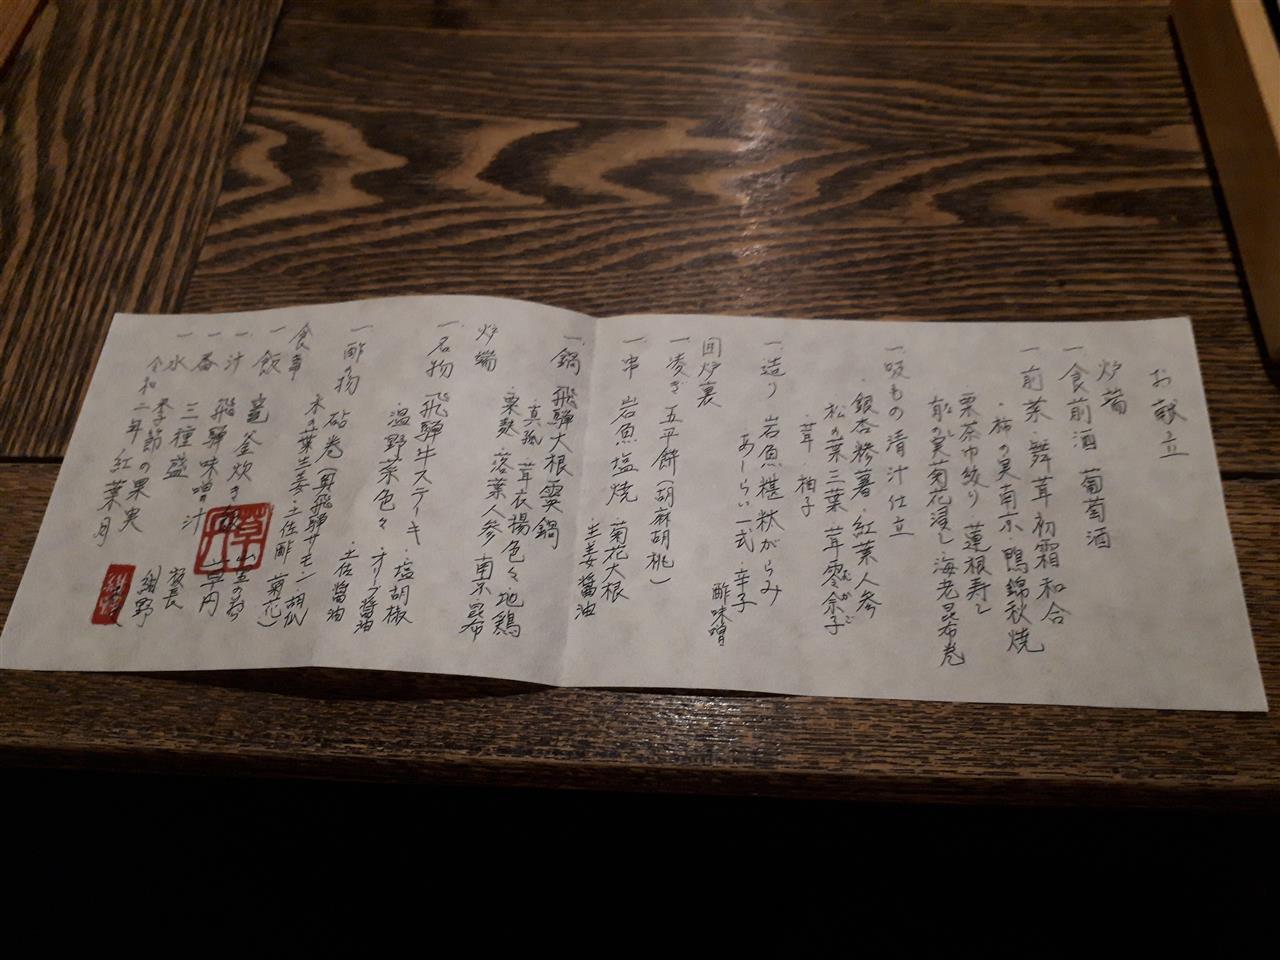 お献立
炉 前
一、食前酒 葡萄酒
一、前菜 ・舞茸初霜和合
・柿の実南京・鴨錦秋焼
栗茶巾絞り・蓮根寿し
菊花浸し・海老昆布巻
一、吸もの 清汁仕立
・銀杏糝薯・紅葉人参
松の葉三葉 茸零余子
・茸 ・柚子
一、造り 岩魚 糀がらみ
あしらい一式・辛子
酢味噌
囲炉裏
一、凌ぎ 五平餅(胡麻胡桃)
一、串 岩魚塩焼 菊花大根
生姜醤油
一、鍋 飛騨大根霙鍋
・真狐・茸衣揚色々地鶏
・栗麩 落葉人参 南京・昆布
炉端
一、名物 飛騨牛ステーキ ・塩胡椒
・温野菜色々 オリーブ醤油
・土佐醤油
一、酢の物 砧巻(奥飛騨サーモン・胡瓜
木の葉生姜・土佐酢 菊花)
食事
一、飯 竈釜炊き
一、汁 飛騨味噌汁
一、香 三種盛
一、水 季節の果実
令和二年 紅葉月
草円
板長
紺野